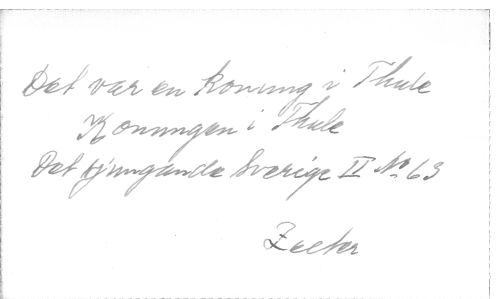 Det var en konung i Thule
Konungen i Thule
Det sjungande Sverige II No 63
Zelter